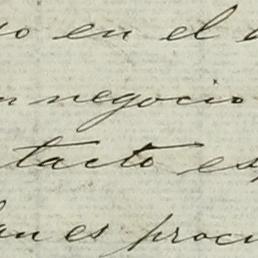 en el
negocio
tacto es
es procu